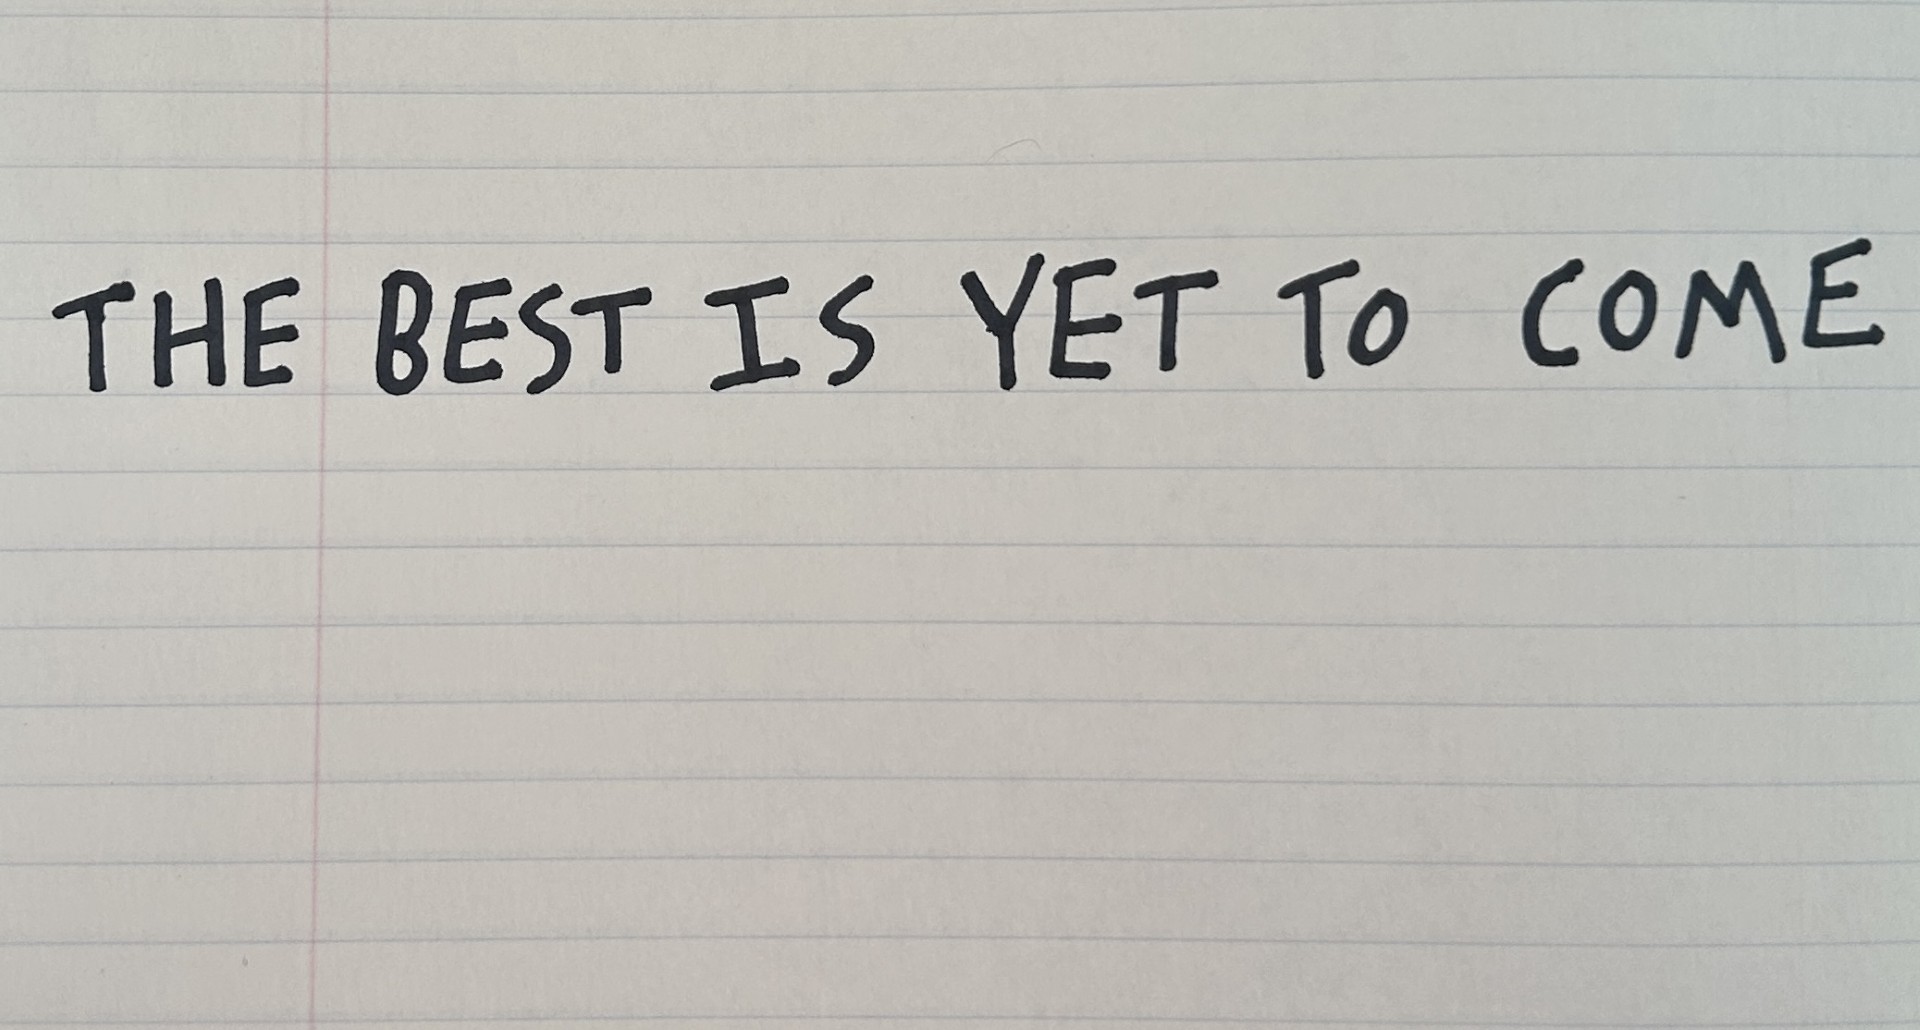 THE BEST IS YET TO COME